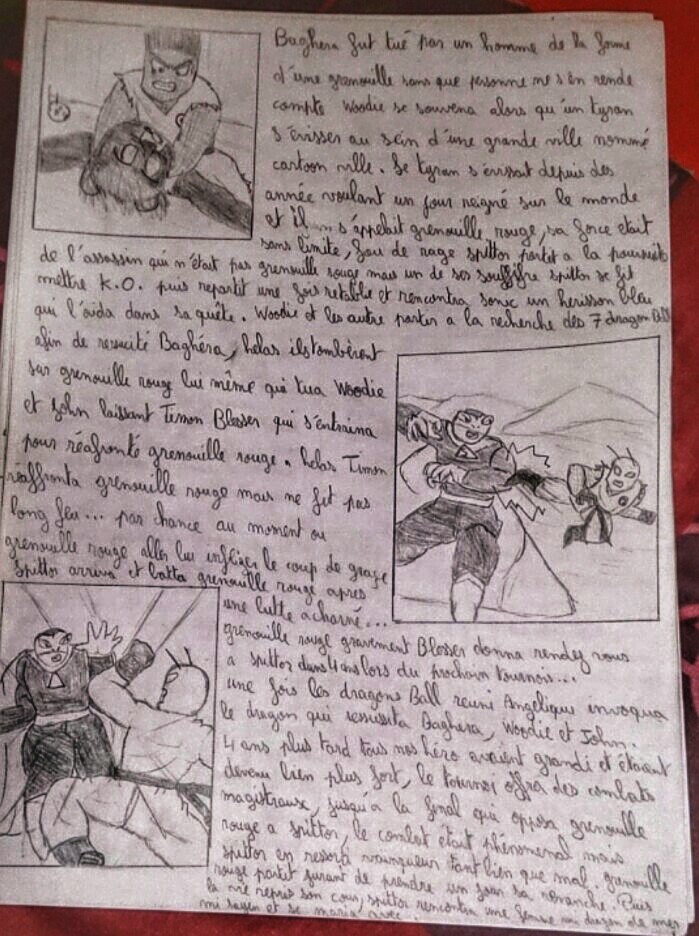 Baghera fut tué par un homme de la forme
d'une grenouille sans que personne ne s'en rende
compte Woodie se souvena alors qu'un tyran
s'érisser au sein d'une grande ville nommé
cartoon ville. Se tyran s'érissait depuis des
année voulant un jour reigné sur le monde
et il s'appelait grenouille rouge, sa force etait
sans limite, fou de rage spittor partit a la poursuite
de l'assassin qui n'était pas grenouille rouge mais un de ses souffifre spittor se fit
mettre K.O. puis repartit une fois retablie et rencontra sonic un herisson bleu
qui l'aida dans sa quête. Woodie et les autre parter a la recherche des 7 dragon Ball
afin de resucité Baghéra, helas ils tombèrent
sur grenouille rouge lui même qui tua Woodie
et John laissant Timon Blesser qui s'entraina
pour réafronté grenouille rouge. helas Timon
réaffronta grenouille rouge mais ne fit pas
long feu... par chance au moment ou
grenouille rouge aller lui infliger le coup de grase
Spittor arriva et batta grenouille rouge apres
une lutte acharné...
grenouille rouge gravement Blesser donna rendez vous
a spittor dans 4 ans lors du prochain tournois...
une fois les dragons Ball reuni Angélique invoqua
le dragon qui ressusita Baghera, Woodie et John.
4 ans plus tard tous nos héro avaient grandi et étaient
devenu bien plus fort, le tournoi offra des combats
magistraux, jusqu'a la final qui opposa grenouille
rouge a spittor, le combat etait phénomenal mais
spittor en ressorta vainqueur tant bien que mal. grenouille
rouge partit jurant de prendre un jour sa revanche. Puis
la vie repris son cour, spittor rencontra une femme mi dragon de mer
mi sayen et se maria avec.